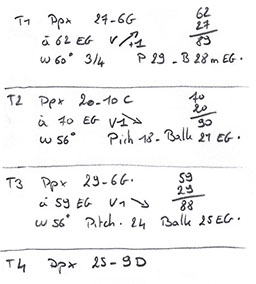 T1 Dpx 27-6G 62
27
à 62 EG V +1 89
W 60° 3/4 P 29 - B 28 m EG.
T2 Dpx 20-10 C 70
20
à 70 EG V-1 90
W 56° Pitch 18 - Balle 21 EG.
T3 Dpx 29-6G. 59
29
à 59 EG V-1 88
W 56° Pitch. 24 Balle 25 EG.
T4 Dpx 25-9D